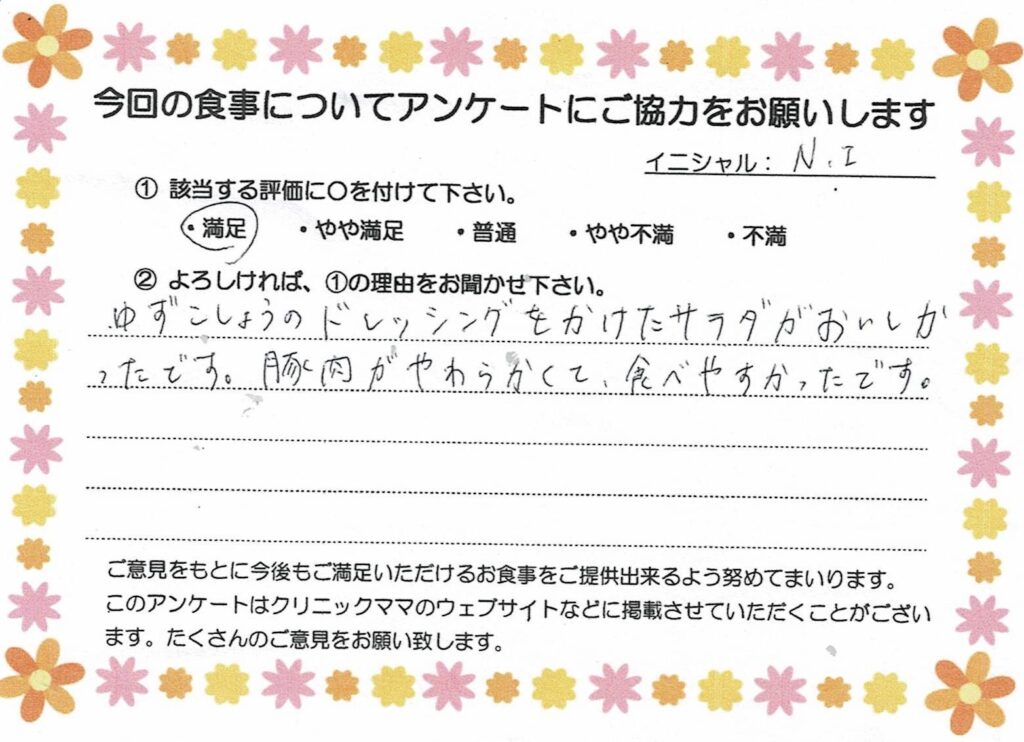 今回の食事についてアンケートにご協力をお願いします
イニシャル： N.I
① 該当する評価に〇を付けて下さい。
・満足 ・やや満足 ・普通 ・やや不満 ・不満
② よろしければ、①の理由をお聞かせ下さい。
ゆずこしょうのドレッシングをかけたサラダがおいしか
ったです。豚肉がやわらかくて、食べやすかったです。
ご意見をもとに今後もご満足いただけるお食事をご提供出来るよう努めてまいります。
このアンケートはクリニックママのウェブサイトなどに掲載させていただくことがござい
ます。たくさんのご意見をお願い致します。